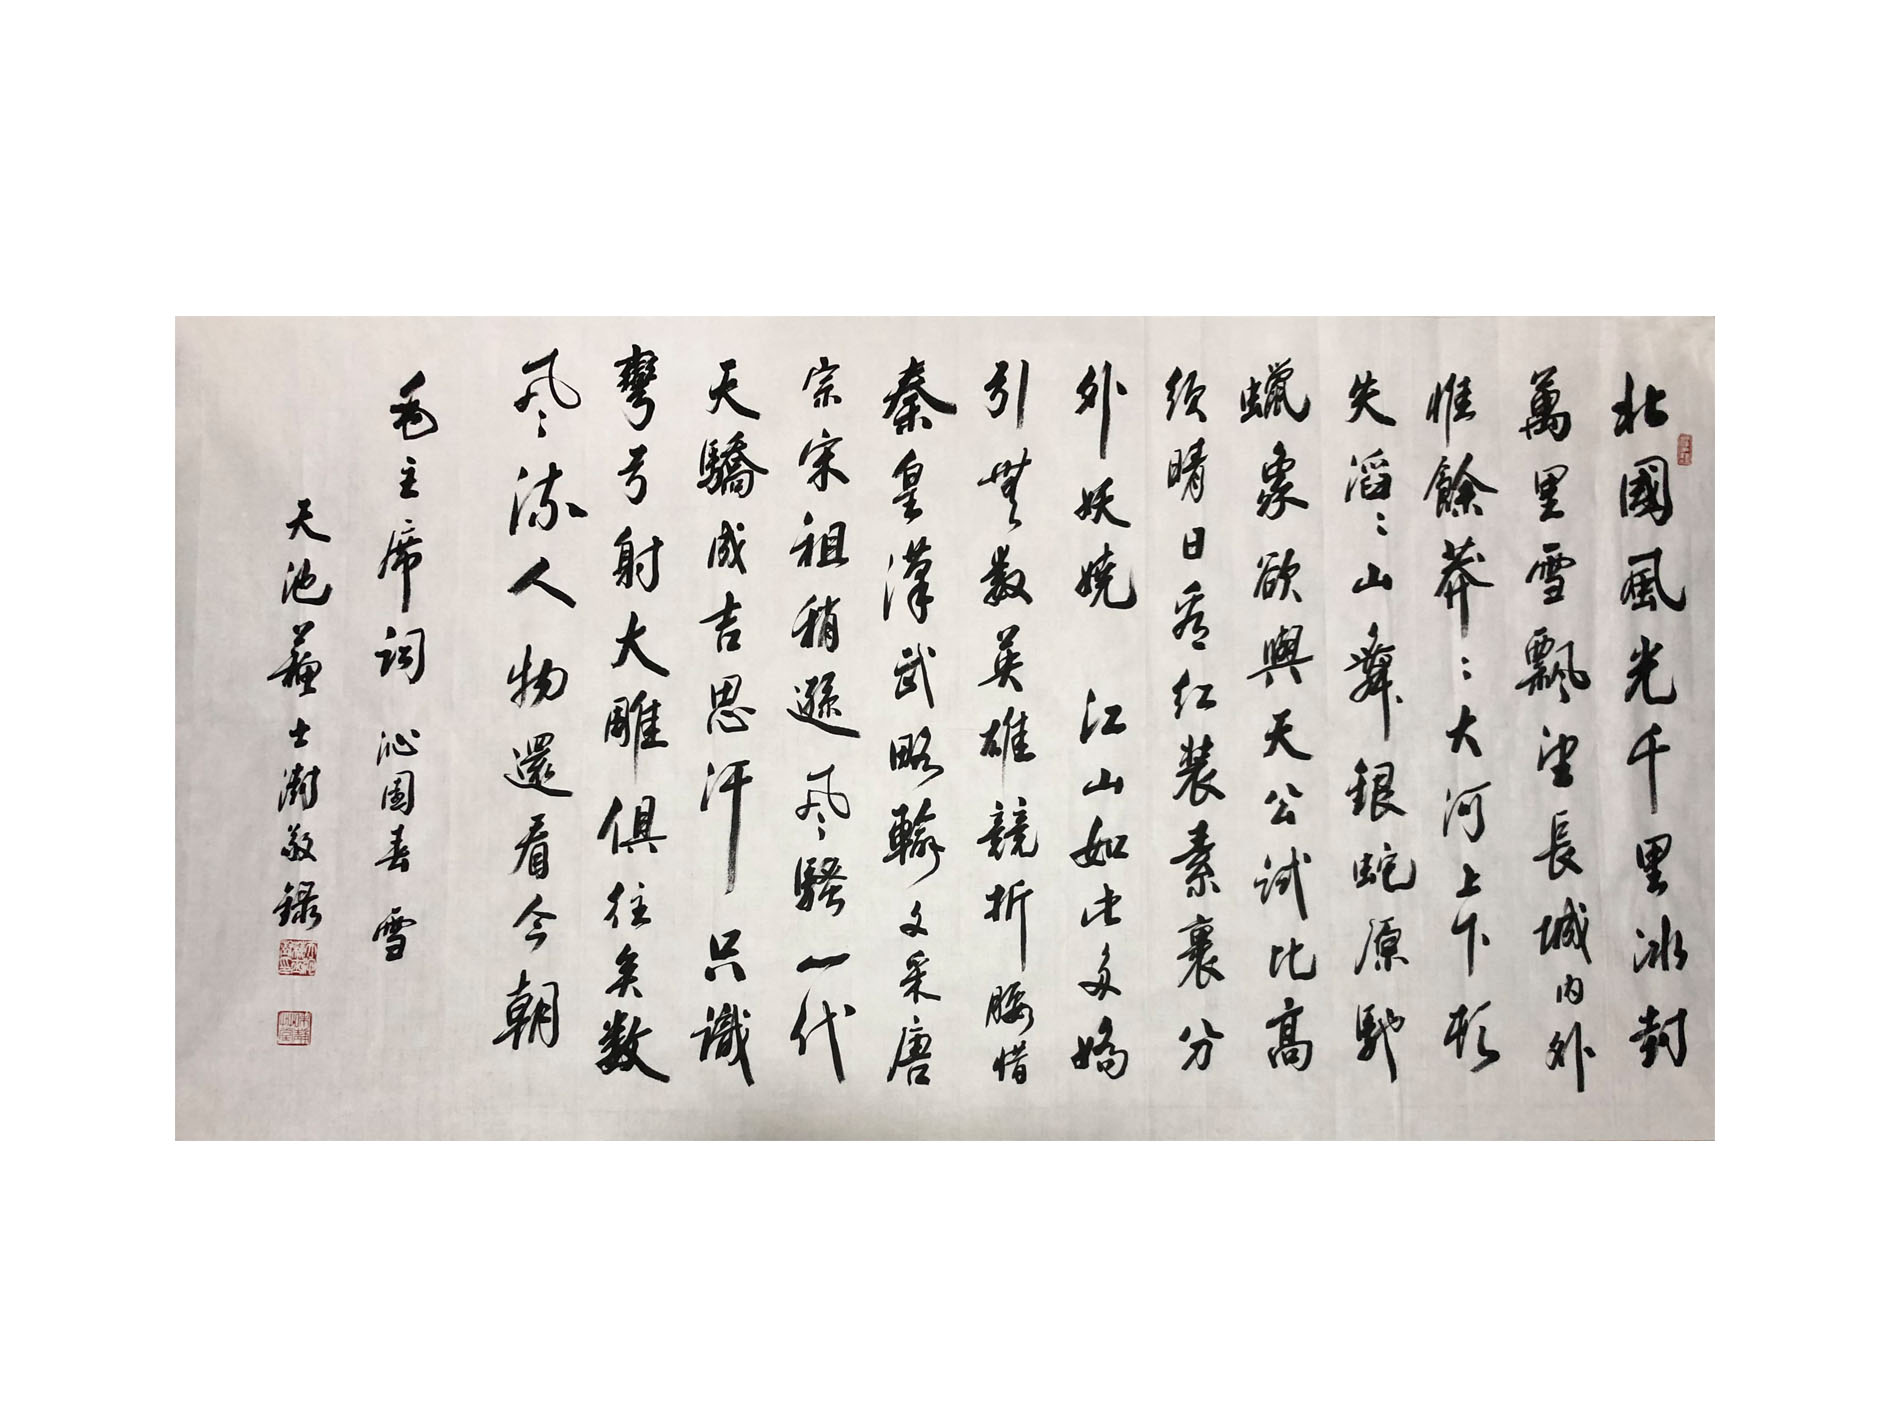 北國風光千里冰封
萬里雪飄望長城内外
惟餘莽〻大河上下頓
失滔〻山舞銀蛇原馳
蠟象欲與天公試比高
須晴日看紅裝素裹分
外妖嬈 江山如此多嬌
引無數英雄競折腰惜
秦皇漢武略輸文采唐
宗宋祖稍遜風騷一代
天驕成吉思汗 只識
彎弓射大雕俱往矣數
風流人物還看今朝
毛主席詞 沁園春 雪
天池蘇士澍敬錄